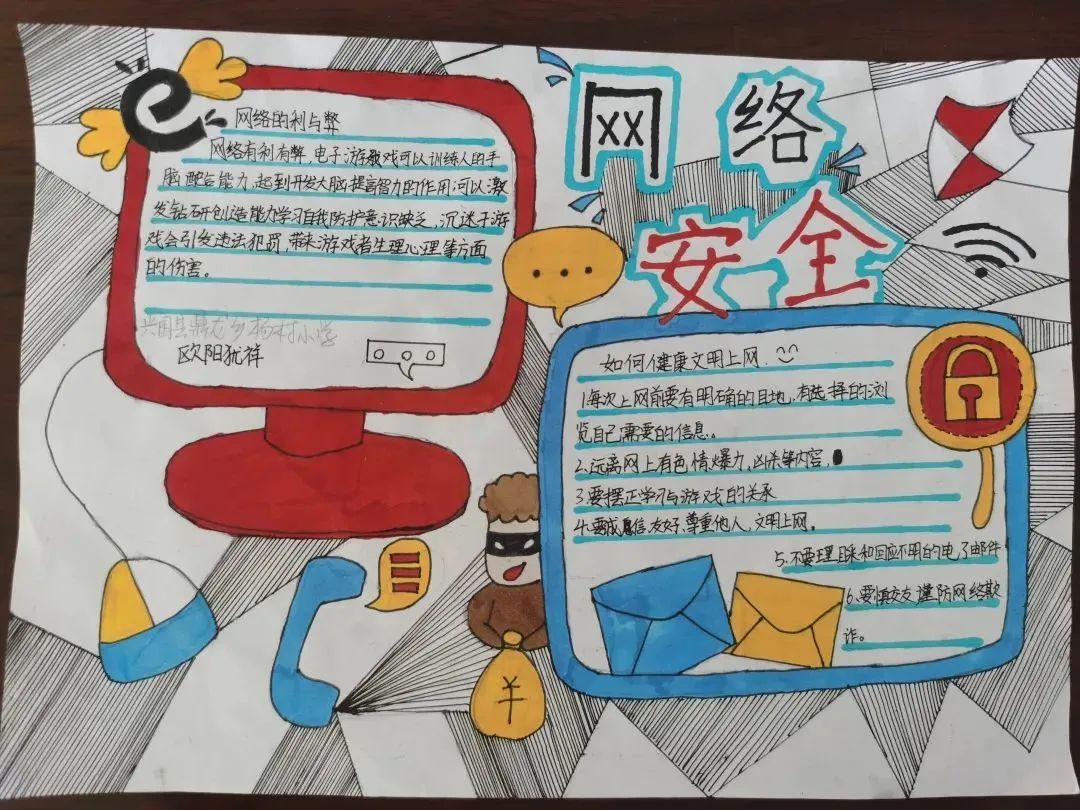 网络
安全
网络的利与弊
网络有利有弊,电子游戏可以训练人的手
脑配合能力,起到开发大脑提高智力的作用可以激
发钻研创造能力学习自我防护意识缺乏,沉迷于游
戏会引发违法犯罪,带来游戏者生理心理等方面
的伤害。
兴国县鼎龙乡杨村小学
欧阳犹祥
如何健康文明上网.
1每次上网前要有明确的目地,有选择的浏
览自己需要的信息。
2.远离网上有色情爆力,凶杀等内容,
3.要摆正学习与游戏的关系
4.要诚信,友好,尊重他人,文明上网。
5.不要理睬和回应不明的电子邮件
6.要慎交友谨防网络欺
诈。
¥
e